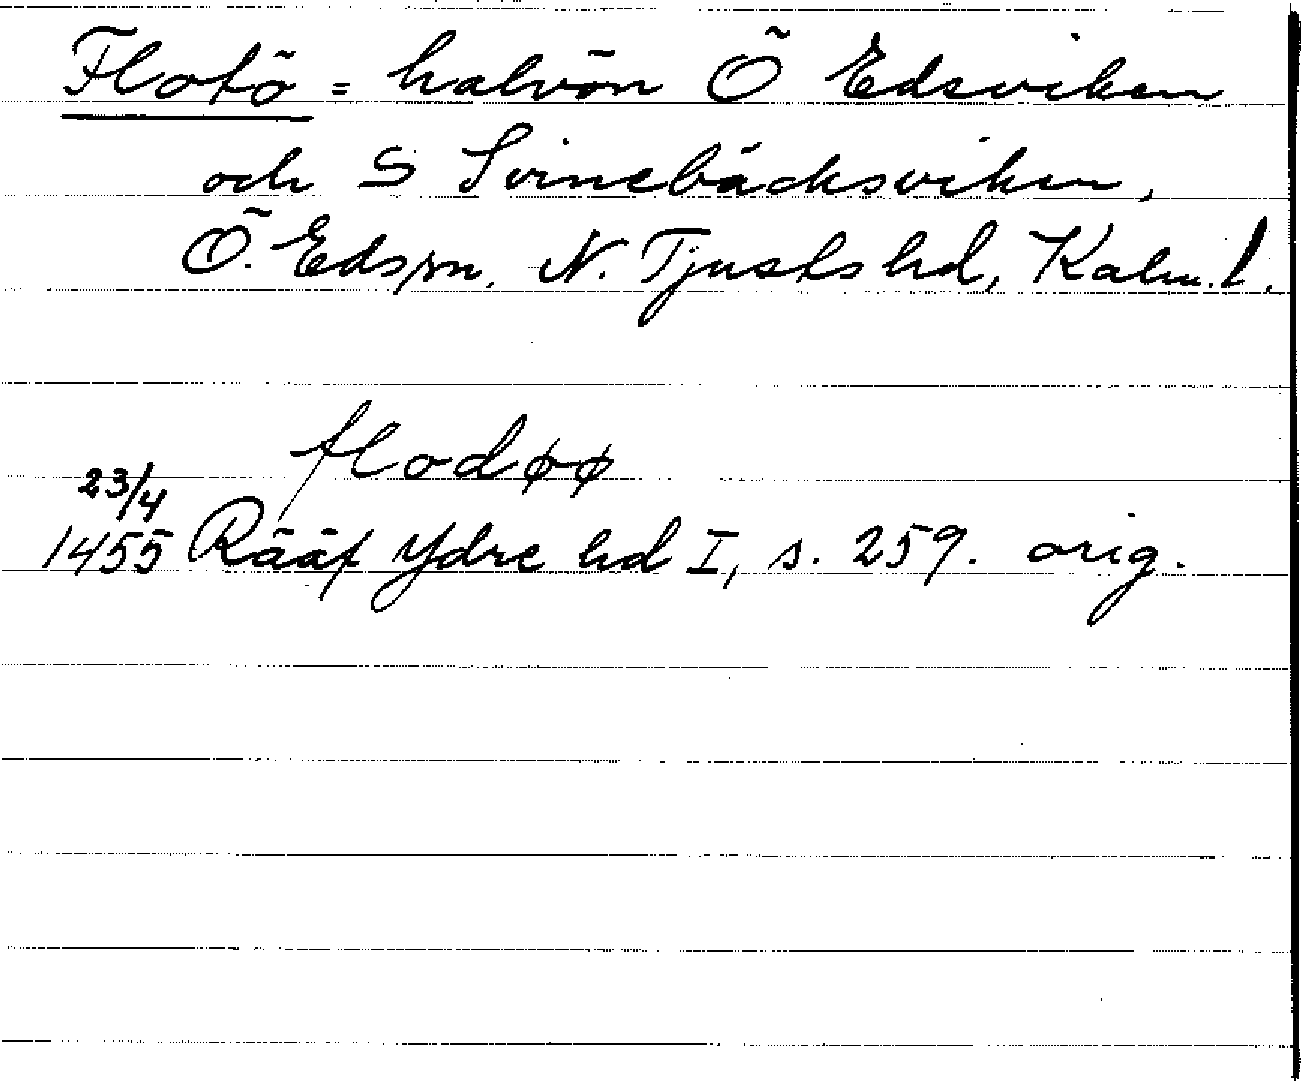 Flotö = halvön Ö Edsviken
och S Svinebäcksviken,
Ö. Eds sn, N. Tjusts hd, Kalm. l.
flodøø
23/4
1455 Rääf Ydre hd I, s. 259. orig.